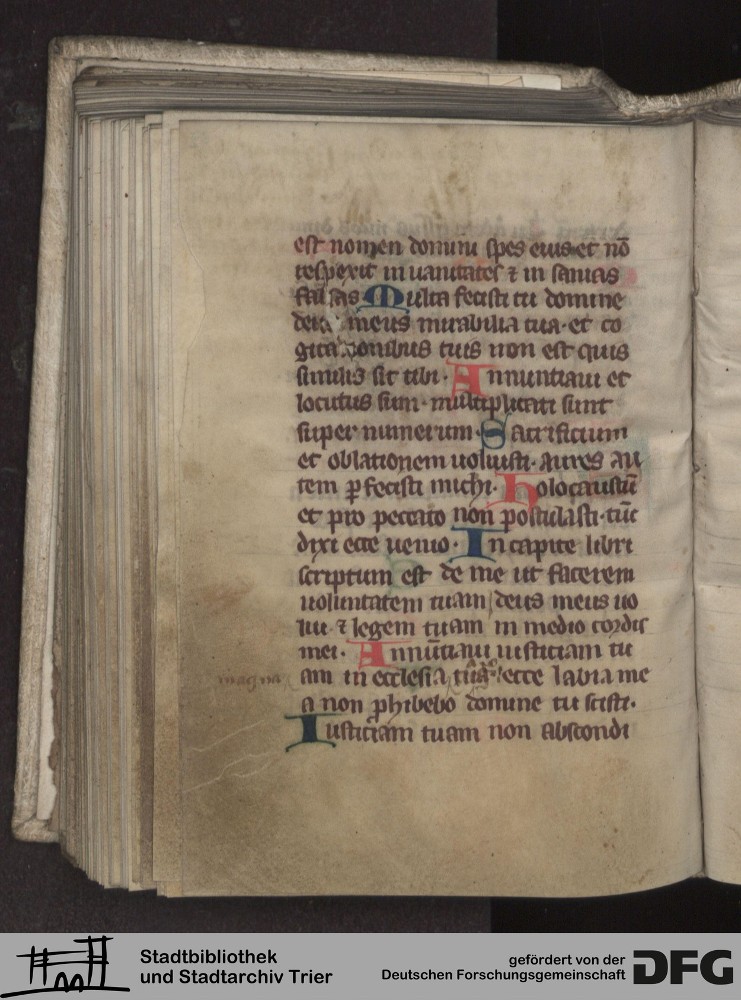 est nomen domini spes eius et nō
respexit in uanitates ⁊ in sanias
falsas Multa fecisti tu domine
deus meus mirabilia tua · et co
gitationibus tuis non est quis
similis sit tibi · Annuntiaui et
locutus sum · multiplicati sunt
super numerum · Sacrificium
et oblationem uoluisti · aures au
tem ꝑfecisti michi · holocaustū
et pro peccato non postulasti · tūc
dixi ecce uenio · In capite libri
scriptum est de me ut facerem
uoluntatem tuam deus meus uo
lui · ⁊ legem tuam in medio cordis
mei · Annūtiaui iusticiam tu
magna
am in ecclesia ecce labia me
a non ꝓhibebo domine tu scisti ·
Iusticiam tuam non abscondi
Stadtbibliothek
und Stadtarchiv Trier
gefördert von der
Deutschen Forschungsgemeinschaft
DFG